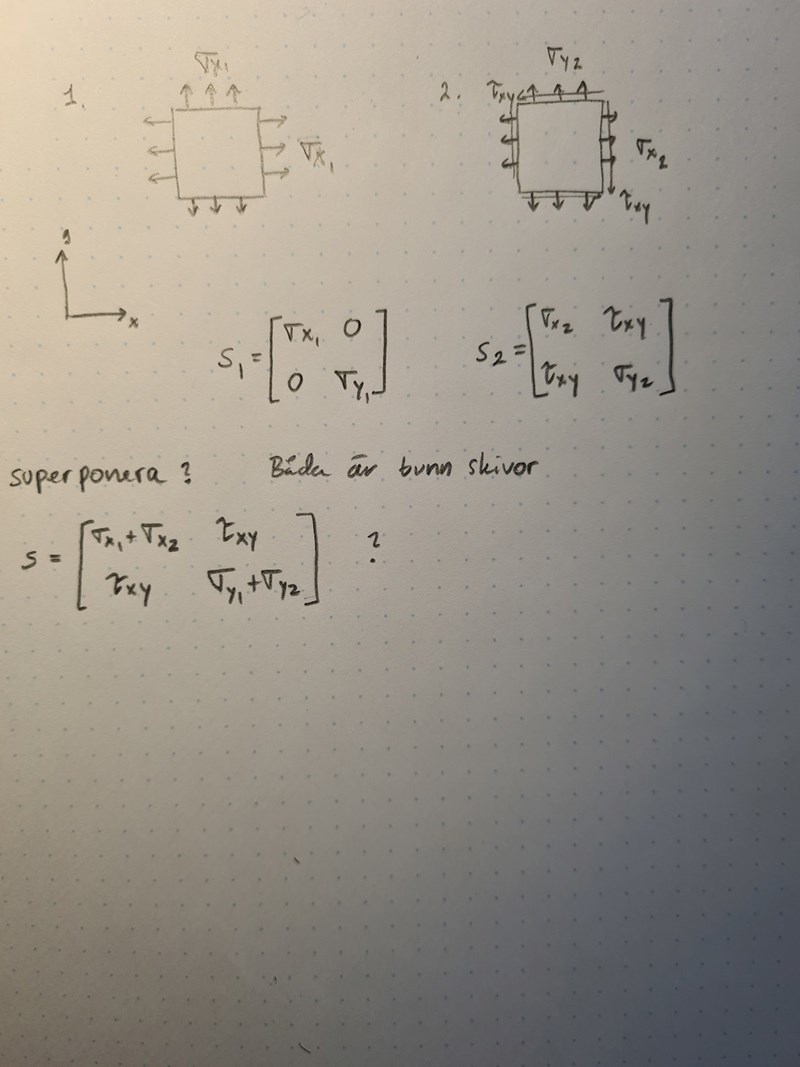 1. σx₁ σx₁
2. τxy σy₂ σx₂ τxy
y
x
S₁ = [σx₁ 0
0 σy₁]
S₂ = [σx₂ τxy
τxy σy₂]
superponera ? Båda är tunn skivor
S = [σx₁+σx₂ τxy
τxy σy₁+σy₂] ?